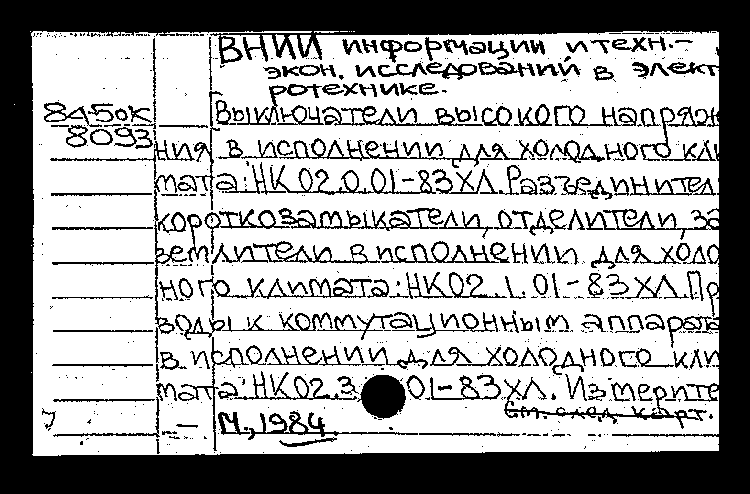 ВНИИ информации и техн.-
экон. исследований в элект
ротехнике.
84-5ок
8093
Выключатели высокого напряж
ния в исполнении для холодного кли
мата: НК 02.0.01-83 ХЛ. Разъединител
короткозамыкатели, отделители, за
землители в исполнении для холо
ного климата: НК 02.1.01-83 ХЛ. Пр
воды к коммутационным аппарата
в исполнении для холодного кли
мата: НК 02.3 01-83 ХЛ. Измерите
См. след. карт.
— М., 1984